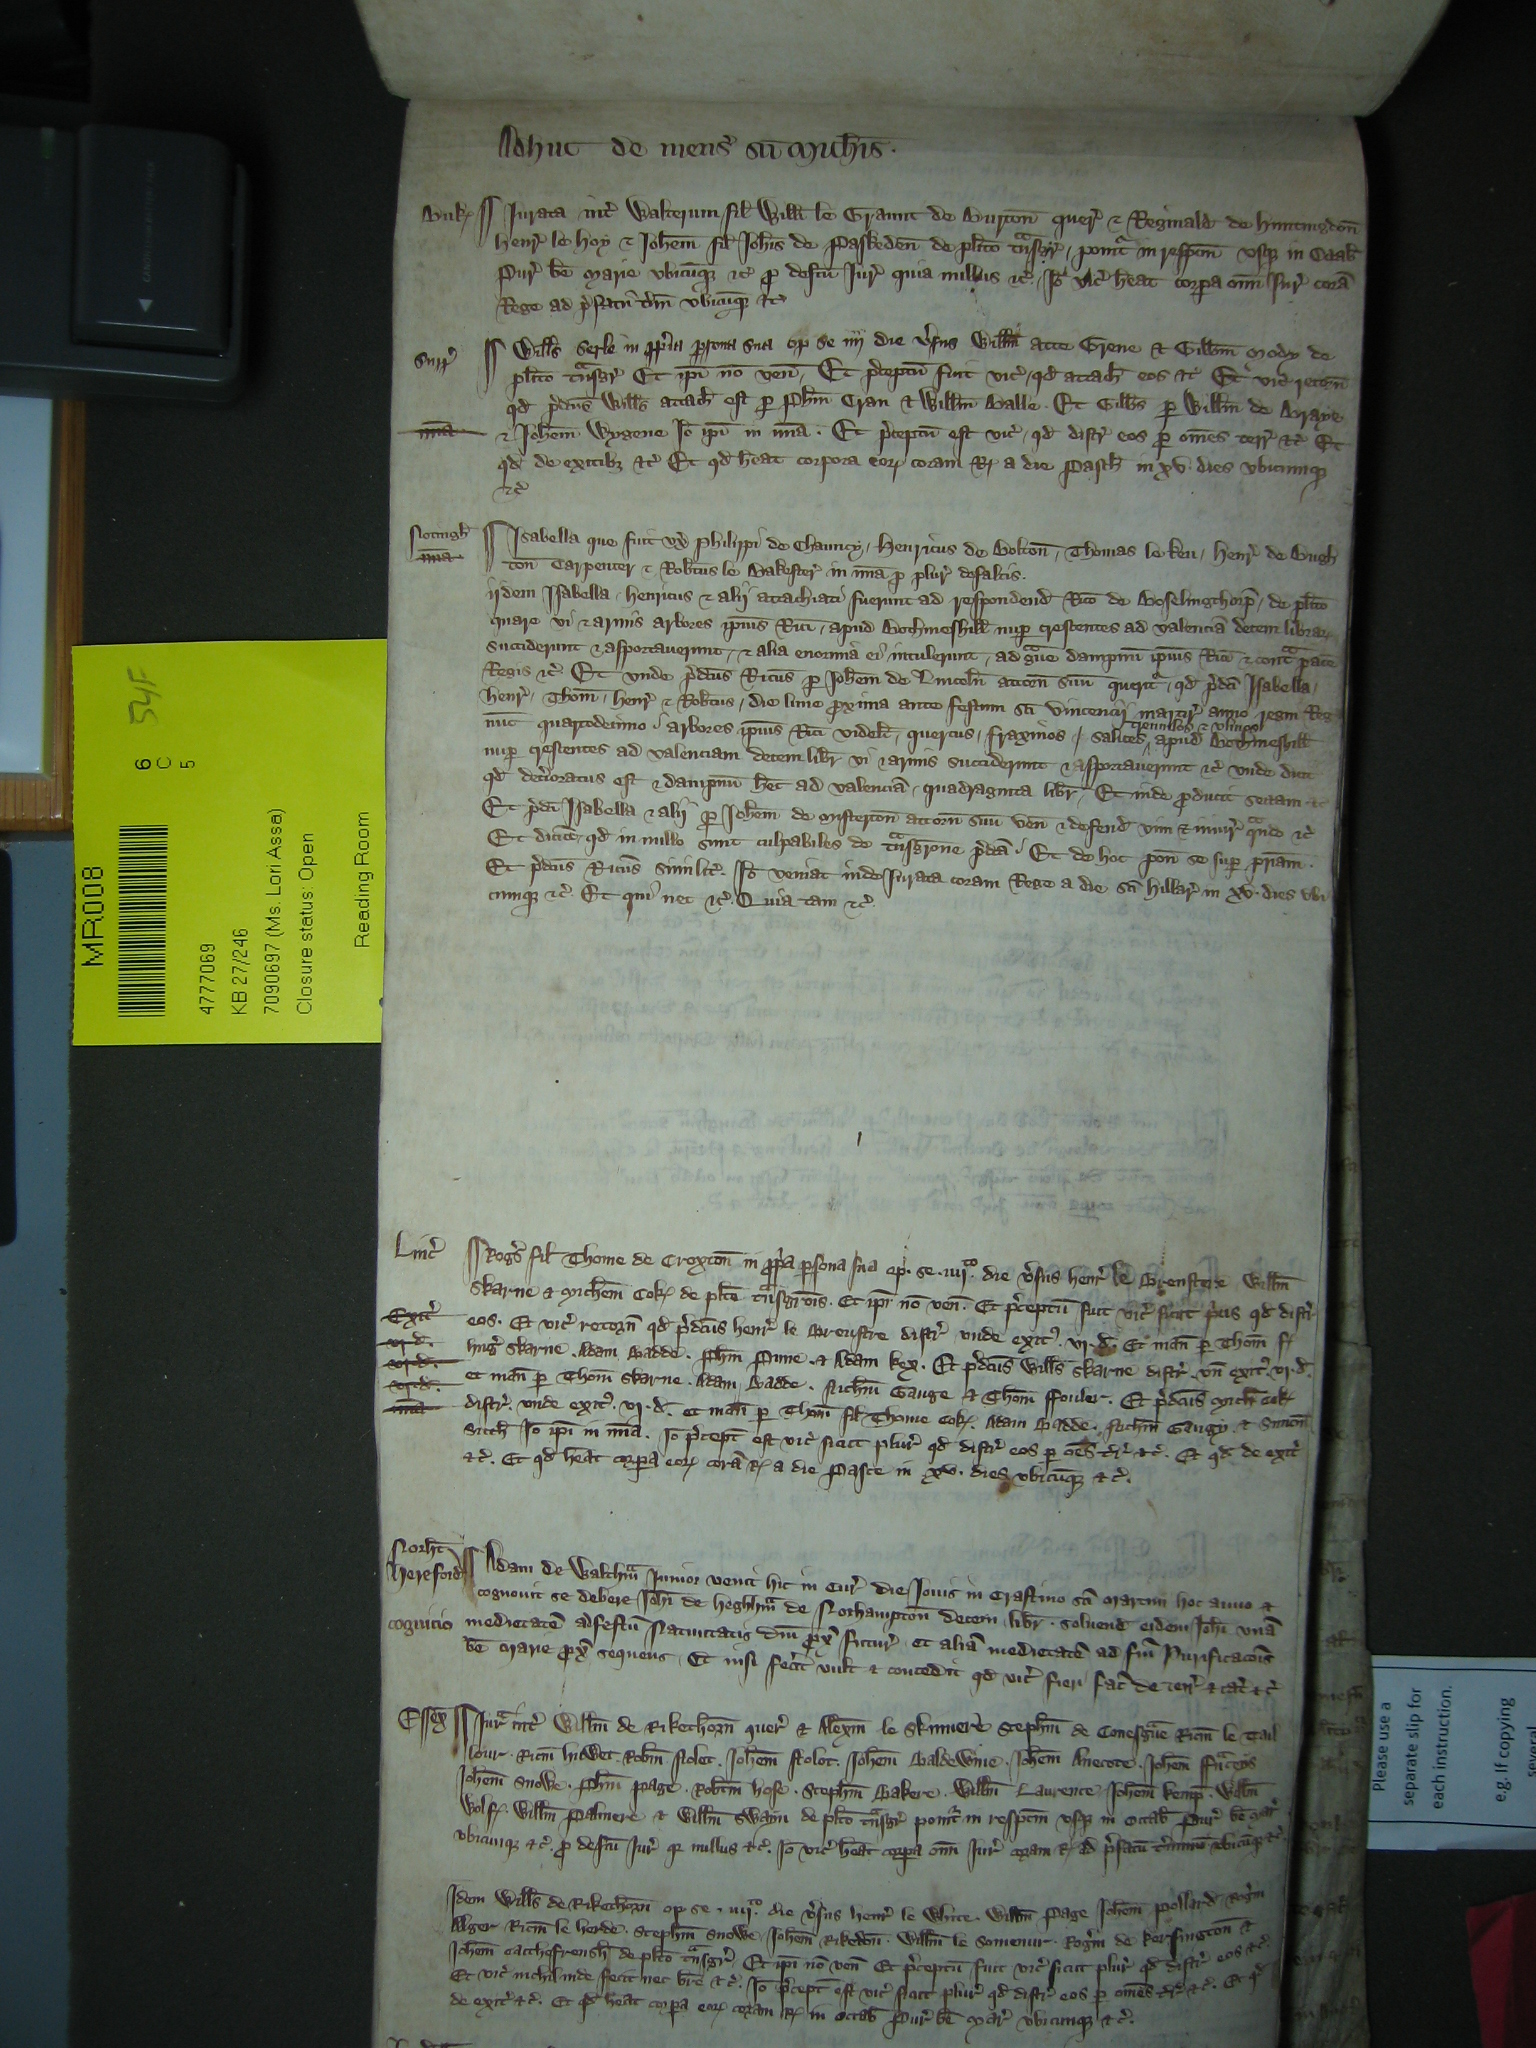 Adhuc de mens̄ sc̄i Mich̄is.
Buk̄ Iurata int̄ Walterum fil̄ Will̄i le Graunt de Burton̄ quer̄ & Reginald̄ de Huntingdon̄
Henr̄ le Hoy & Ioh̄em fil̄ Ioh̄is de Paskeden̄ de pl̄ito tn̄sgr̄, ponit̄ in resp̄cm̄ usq̄ in Octab̄
Pur̄ b̄e Marie ubicūq̄ &c̄ p̄ defc̄u Iur̄ quia nullus &c̄. Iō vic̄ h̄eat corp̄a om̄ Iur̄ corā
Rege ad p̄fatū t̄m̄ ubicūq̄ &c̄
Surr̄ Will̄s Serle in p̄p̄ia p̄sona sua op̄ se iiij die v̄sus Will̄m atte Grene & Gilb̄m Mody de
pl̄ito tn̄sgr̄ Et ip̄i nō ven̄. Et p̄ceptū fuit vic̄ qd̄ attach̄ eos &c̄ Et vic̄ retorn̄
qd̄ p̄dc̄us Will̄s attach̄ est p̄ Ph̄m Cran & Will̄m Balle. Et Gilb̄s p̄ Will̄m de Braye
m̄ia & Ioh̄em Wygene Iō ip̄i in m̄ia. Et p̄ceptū est vic̄ qd̄ distr̄ eos p̄ om̄es terr̄ &c̄ Et
qd̄ de exitibȝ &c̄ Et qd̄ h̄eat corpora eoꝝ coram R̄ a die Pasch̄ in xv dies ubicumq̄
&c̄
Notingh̄ Isabella que fuit ux̄ Philippi de Chauncy, Henricus de Bolton̄, Thomas le Keu, Henr̄ de Bugh
m̄ia ton̄ Carpenter & Rob̄tus le Bakester̄ in m̄ia p̄ plur̄ defaltis.
ijdem Isabella, Henricus & alij attachiati fuerunt ad respondend̄ Ric̄o de Boselingthorp̄, de pl̄ito
quare vi & armis arbores ip̄ius Ric̄i, apud Bothmeshill̄ nup̄ crescentes ad valenciā decem librar̄
succiderunt & asportaverunt, & alia enormia ei intulerunt, ad gūe dampnū ip̄ius Ric̄i & cont̄ pacē
Regis &c̄ Et unde p̄dc̄us Ric̄us p̄ Ioh̄em de Lincoln̄ attorn̄ suū querit̄, qd̄ p̄dc̄a Isabella,
Henr̄, Thom̄, Henr̄ & Rob̄tus, die lune p̄xima ante festum sc̄i Vincencij martir̄ anno regni Reḡ
tremulos & ulmos
nūc quartodecimo, arbores ip̄ius Ric̄i videlt̄, quercus, fraxinos, salices, apud Bothmeshill̄
nup̄ crescentes ad valenciam decem libr̄ vi & armis succiderunt & asportaverunt &c̄ unde dicit
qd̄ det̄ioratus est & dampnū h̄et ad valenciā, quadraginta libr̄, Et inde p̄ducit sectam &c̄
Et p̄dc̄i Isabella & alij p̄ Ioh̄em de Misterton̄ attorn̄ suū ven̄ & defend̄ vim & iniur̄ qn̄do &c̄
Et dicūt qd̄ in nullo sunt culpabiles de tn̄sgr̄one p̄dc̄a. Et de hoc pon̄ se sup̄ p̄riam.
Et p̄dc̄us Ric̄us similit̄. Iō veniat inde Iurata coram Rege a die sc̄i Hillar̄ in xv dies ubi
cumq̄ &c̄. Et qui nec &c̄. Quia tam &c̄.
Linc̄ Roḡs fil̄ Thome de Croxton̄ in p̄p̄a p̄sona sua op̄ se iiijto die v̄sus Henr̄ le Breustere Will̄m
Skarne & Mich̄em Cok̄ de pl̄ito tn̄sgr̄ois. Et ip̄i nō ven̄. Et p̄ceptū fuit vic̄ sicut p̄us qd̄ distr̄
Exit̄ eos. Et vic̄ retorn̄ qd̄ p̄dc̄us Henr̄ le Breustre distr̄ unde exit̄ vj d̄ Et man̄ p̄ Thom̄ f̄
vj d̄. Hug̅ Skarne. Adam Badde. Ph̄m Pume. & Adam Kex. Et p̄dc̄us Will̄s Skarne distr̄. un̄ exit̄ vj d̄
vj d̄. et man̄ p̄ Thom̄ Skarne. Adam Badde. Nich̄m Gauge & Thom̄ Fouler. Et p̄dc̄us Mich̄ Cok̄
vj d̄. distr̄. unde exit̄ vj d̄. et man̄ p̄ Thom̄ fil̄ Thome Cok̄. Adam Badde. Nich̄m Gaugy. & Simon̄
m̄ia Iō ip̄i in m̄ia. Iō p̄cept̄ est vic̄ sicut plur̄ qd̄ distr̄ eos p̄ oēs t̄r̄ &c̄. Et qd̄ de exit̄
&c̄. Et qd̄ h̄eat corp̄a eoꝝ corā R̄ a die Pasce in xv dies ubicūq̄ &c̄.
Norh̄t Adam de Walth̄m Iunior venit hic in Cur̄ die Iovis in Crastino sc̄i Martini hoc anno &
Hereford̄ cognovit se debere Ioh̄i de Heghh̄m de Northampton̄ decem libr̄. solvend̄ eidem Ioh̄i unā
cognicio medietatē ad festū Nativitatis dn̄i p̄x̄ futur̄. et aliā medietatē ad fm̄ Purificacōis
b̄e Marie p̄x̄ sequens. Et nisi fec̄it vult & concedit qd̄ vic̄ fieri fac̄ de terr̄ & cat̄ &c̄
Essex̄ Iur̄ int̄ Will̄m de Rikethorn̄ quer̄ & Alex̄m le Skinnere Steph̄m de Conesgūe Ric̄m le Tail
lour. Ric̄m Huwet. Rob̄m Nolet. Ioh̄em Stolot. Ioh̄em Baldewine. Ioh̄em Anecote. Ioh̄em Fn̄ceys
Ioh̄em Snowe. Ph̄m Page. Rob̄tm Hose. Steph̄m Bakere. Will̄m Laurence Ioh̄em Kemp. Will̄m
Wolf. Will̄m Palmere & Will̄m Swayn de pl̄ito tn̄sgr̄ ponit̄ in resp̄cm̄ usq̄ in Octab̄ Pur̄ b̄e Mar̄
ubicumq̄ &c̄. p̄ defc̄u Iur̄ qr̄ nullus &c̄. Iō vic̄ h̄eat corp̄a om̄ Iur̄ coram R̄ ad p̄fatū t̄minū ubicūq̄ &c̄.
Idem Will̄s de Rikethorn̄ op̄ se iiijto die v̄sus Henr̄ le White. Will̄m Page Ioh̄em Pollard̄ Rog̅m
Alger Ric̄m le Herde. Steph̄m Snowe. Ioh̄em Rikedon̄. Will̄m le Somenur. Rog̅m de Kersington̄ &
Ioh̄em Cacchefrensh̄ de pl̄ito tn̄sgr̄. Et ip̄i nō ven̄ Et p̄ceptū fuit vic̄ sicut plur̄ qd̄ distr̄ eos &c̄.
Et vic̄ nichil inde fecit nec br̄e &c̄. Iō p̄cept̄ est vic̄ sicut plur̄ qd̄ distr̄ eos p̄ om̄es t̄r̄ &c̄. Et qd̄
de exit̄ &c̄. Et qd̄ h̄eat corp̄a eoꝝ coram R̄ in Octab̄ Pur̄ b̄e Mar̄ ubicumq̄ &c̄.
MR008
4777069
KB 27/246
7090697 (Ms. Lori Assa)
Closure status: Open
Reading Room
6
C
5
54F
Please use a
separate slip for
each instruction.
e.g. If copying
several